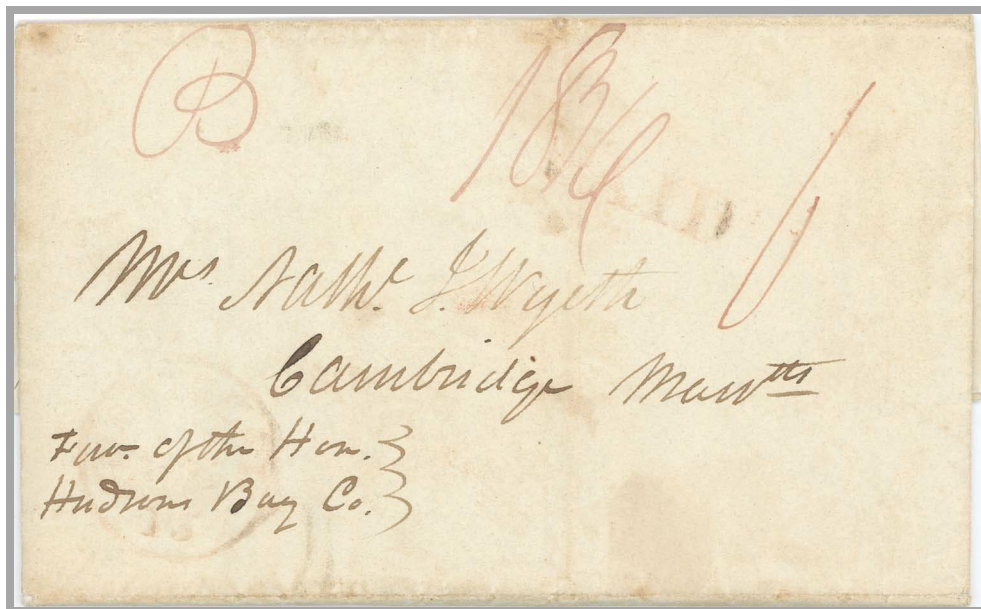 B 18¾ 6
Mrs. Nathl. J. Wyeth
Cambridge Masstts
Favr. of the Hon.
Hudsons Bay Co.